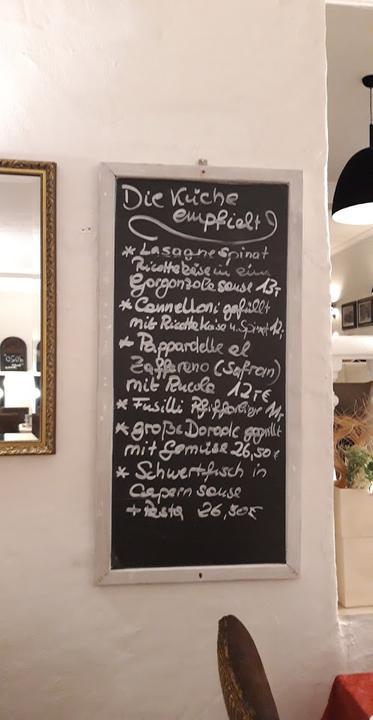 Die Küche
empfielt
* Lasagne Spinat
Ricottakäse in eine
Gorgonzola sause 13,-
* Cannelloni gefüllt
mit Ricottakäse u. Spinat
* Pappardelle al
Zafferano (Safran)
mit Rucola 12,-€
* Fusilli
* große Dorade gegrillt
mit Gemüse 26,50 €
* Schwertfisch in
Capern sause
+ Pasta 26,50€